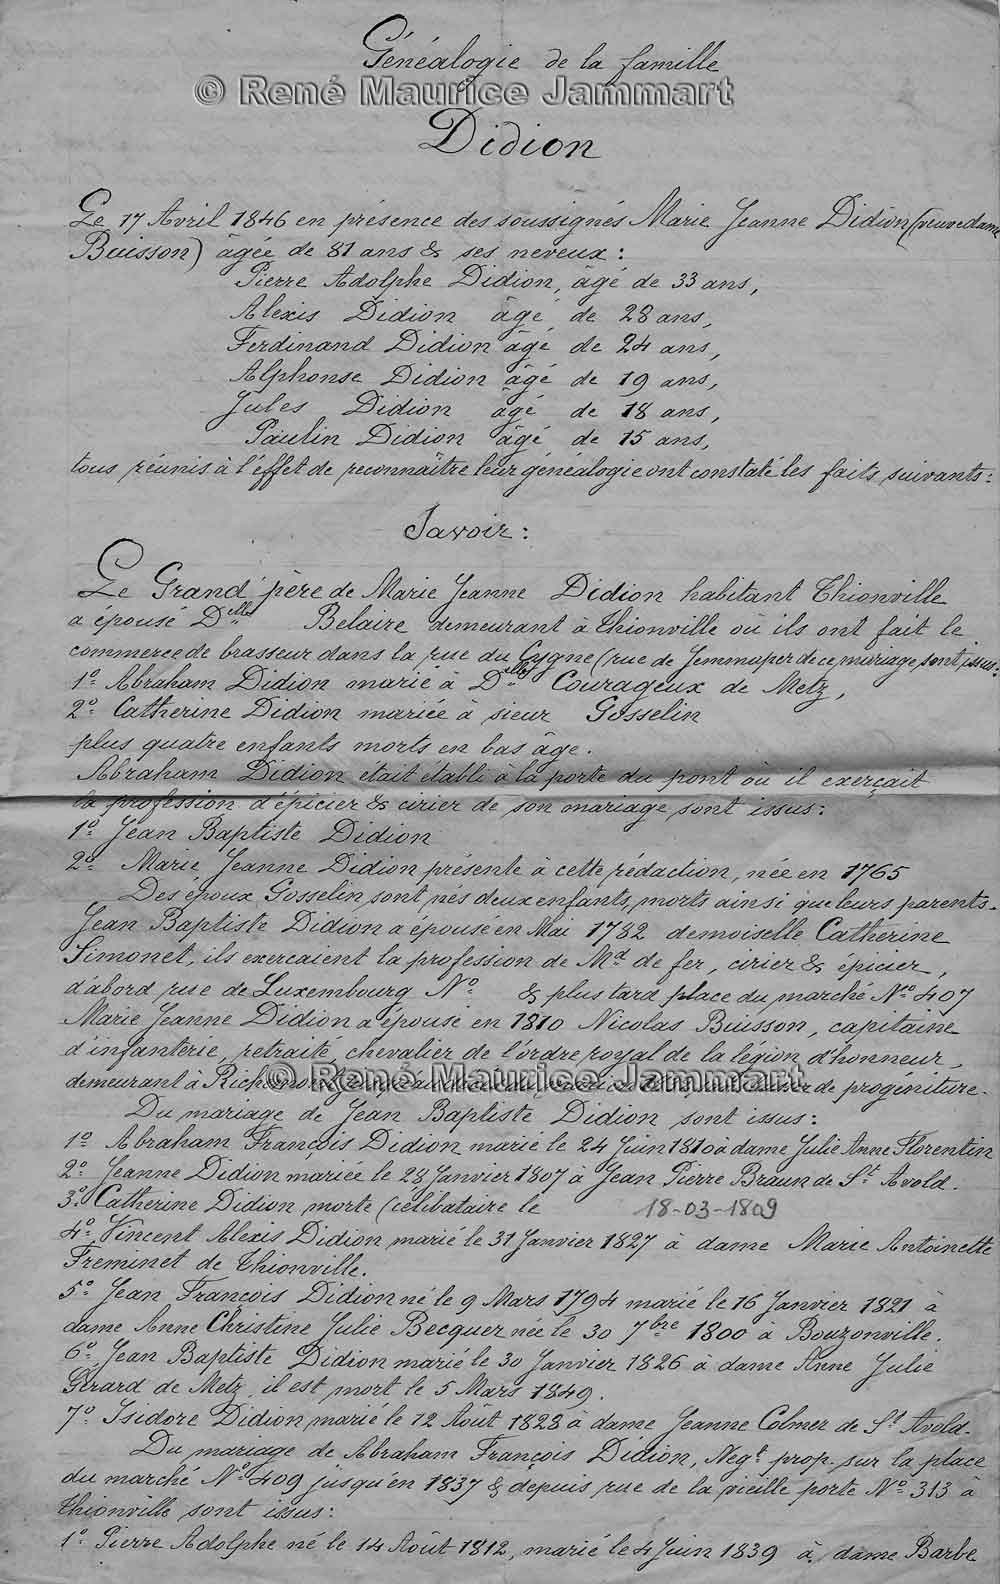 Généalogie de la famille
© René Maurice Jammart
Didion
Le 17 Avril 1846 en présence des soussignés Marie Jeanne Didion (veuve dame
Buisson) âgée de 81 ans & ses neveux :
Pierre Adolphe Didion, âgé de 33 ans,
Alexis Didion âgé de 28 ans,
Ferdinand Didion âgé de 24 ans,
Alphonse Didion âgé de 19 ans,
Jules Didion âgé de 18 ans,
Paulin Didion âgé de 15 ans,
tous réunis à l'effet de reconnaître leur généalogie ont constaté les faits suivants :
Savoir :
Le Grand père de Marie Jeanne Didion habitant Thionville
a épousé Delle Belaire demeurant à Thionville où ils ont fait le
commerce de brasseur dans la rue du Cygne (rue de Jemmaper de ce mariage sont issus :
1º Abraham Didion marié à Delle Courageux de Metz,
2º Catherine Didion mariée à sieur Gosselin
plus quatre enfants morts en bas âge.
Abraham Didion était établi à la porte du pont où il exerçait
la profession d'épicier & cirier de son mariage sont issus :
1º Jean Baptiste Didion
2º Marie Jeanne Didion présente à cette rédaction, née en 1765
Des époux Gosselin sont nés deux enfants, morts ainsi que leurs parents.
Jean Baptiste Didion a épousé en Mai 1782 demoiselle Catherine
Simonet, ils exercaient la profession de Md de fer, cirier & épicier,
d'abord rue de Luxembourg Nº & plus tard place du marché Nº 407
Marie Jeanne Didion a épousé en 1810 Nicolas Buisson, capitaine
d'infanterie, retraité, chevalier de l'ordre royal de la légion d'honneur,
demeurant à de progéniture.
© René Maurice Jammart
Du mariage de Jean Baptiste Didion sont issus :
1º Abraham François Didion marié le 24 Juin 1810 à dame Julie Anne Florentin
2º Jeanne Didion mariée le 28 Janvier 1807 à Jean Pierre Braun de St Avold.
3º Catherine Didion morte célibataire le 18-03-1809
4º Vincent Alexis Didion marié le 31 Janvier 1827 à dame Marie Antoinette
Freminet de Thionville.
5º Jean François Didion né le 9 Mars 1794 marié le 16 Janvier 1821 à
dame Anne Christine Julie Becquer née le 30 7bre 1800 à Bouzonville.
6º Jean Baptiste Didion marié le 30 Janvier 1826 à dame Anne Julie
Gérard de Metz, il est mort le 5 Mars 1849.
7º Isidore Didion marié le 12 Août 1828 à dame Jeanne Colmer de St Avold.
Du mariage de Abraham François Didion, Negt prop. sur la place
du marché Nº 409 jusqu'en 1837 & depuis rue de la vieille porte Nº 313 à
Thionville sont issus :
1º Pierre Adolphe né le 14 Août 1812, marié le 4 Juin 1839 à dame Barbe